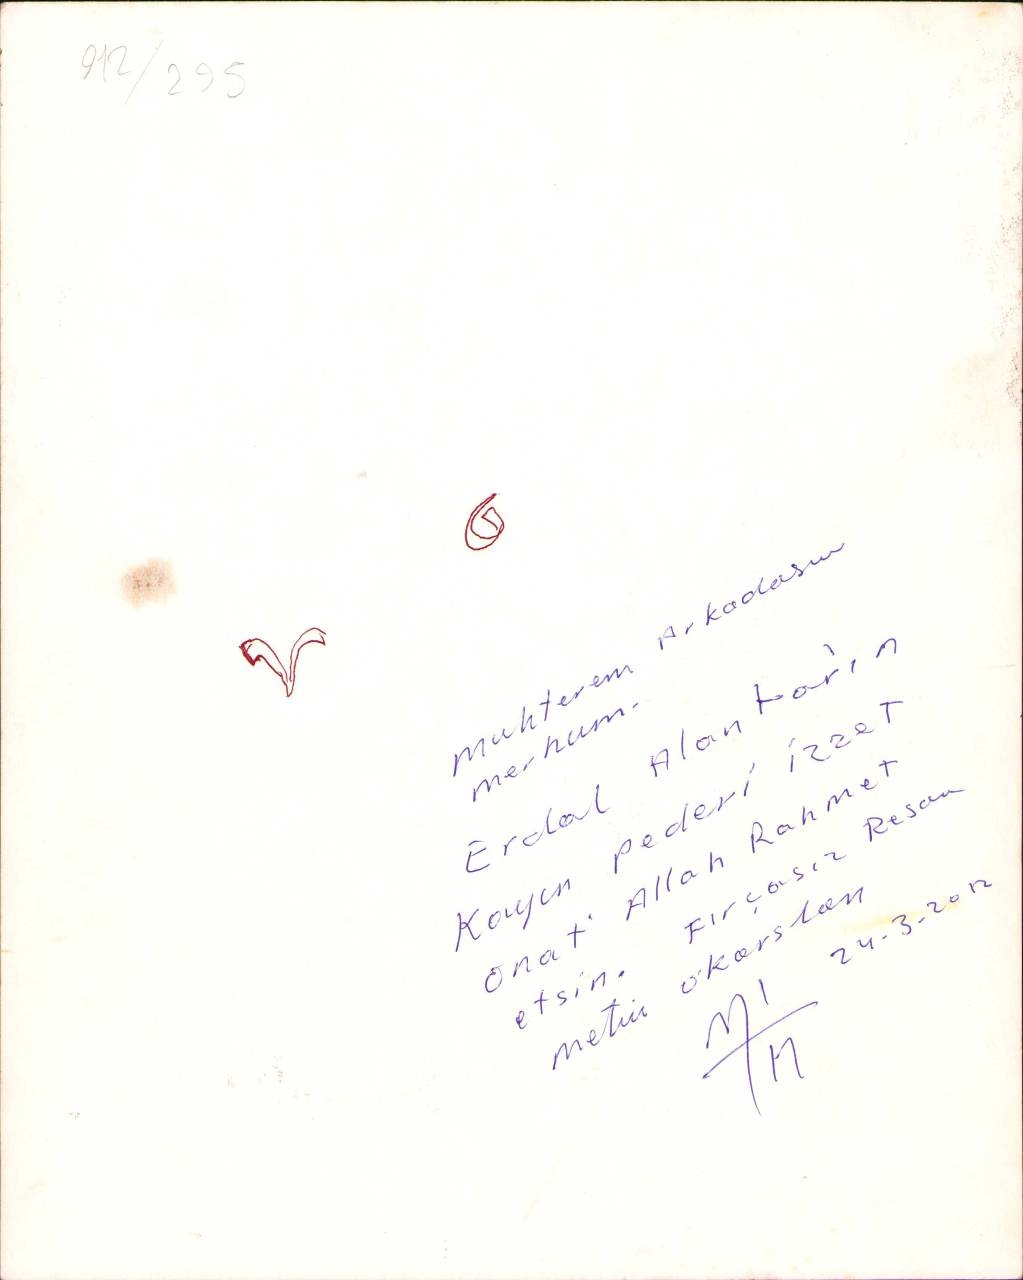 912/295
muhterem Arkadasım
merhum.
Erdal Alantar'ın
Kayın pederi izzet
onat' Allah Rahmet
etsin. Fırçasız Ressam
metin
24-3-2012